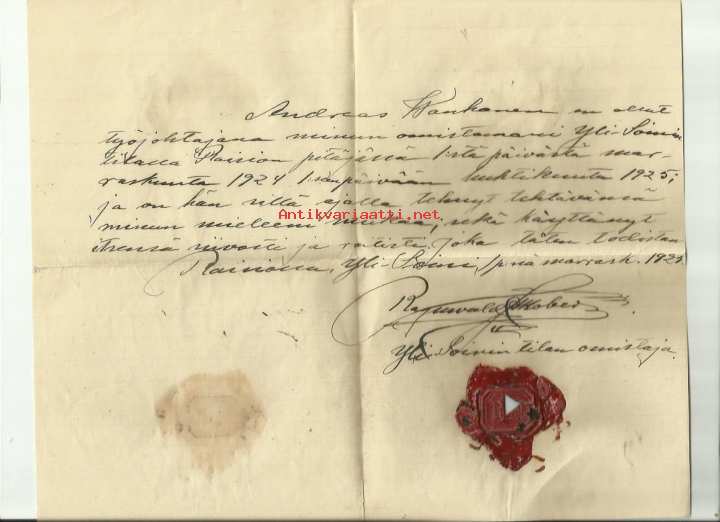 Andreas Wankanen on ollut
työjohtajana minun omistamani Yli-Soinin
tilalla Raision pitäjässä 1:stä päivästä mar-
raskuuta 1924 1:senpäivään huhtikuuta 1925;
ja on hän sillä ajalla tehnyt tehtävänsä
Antikvariaatti.net
minun mieleeni mukaan, sekä käyttänyt
itsensä siivosti ja raittiisti joka täten todistan
Raisiossa, Yli-Soini, marrask. 192
Yli-Soinin tilan omistaja.